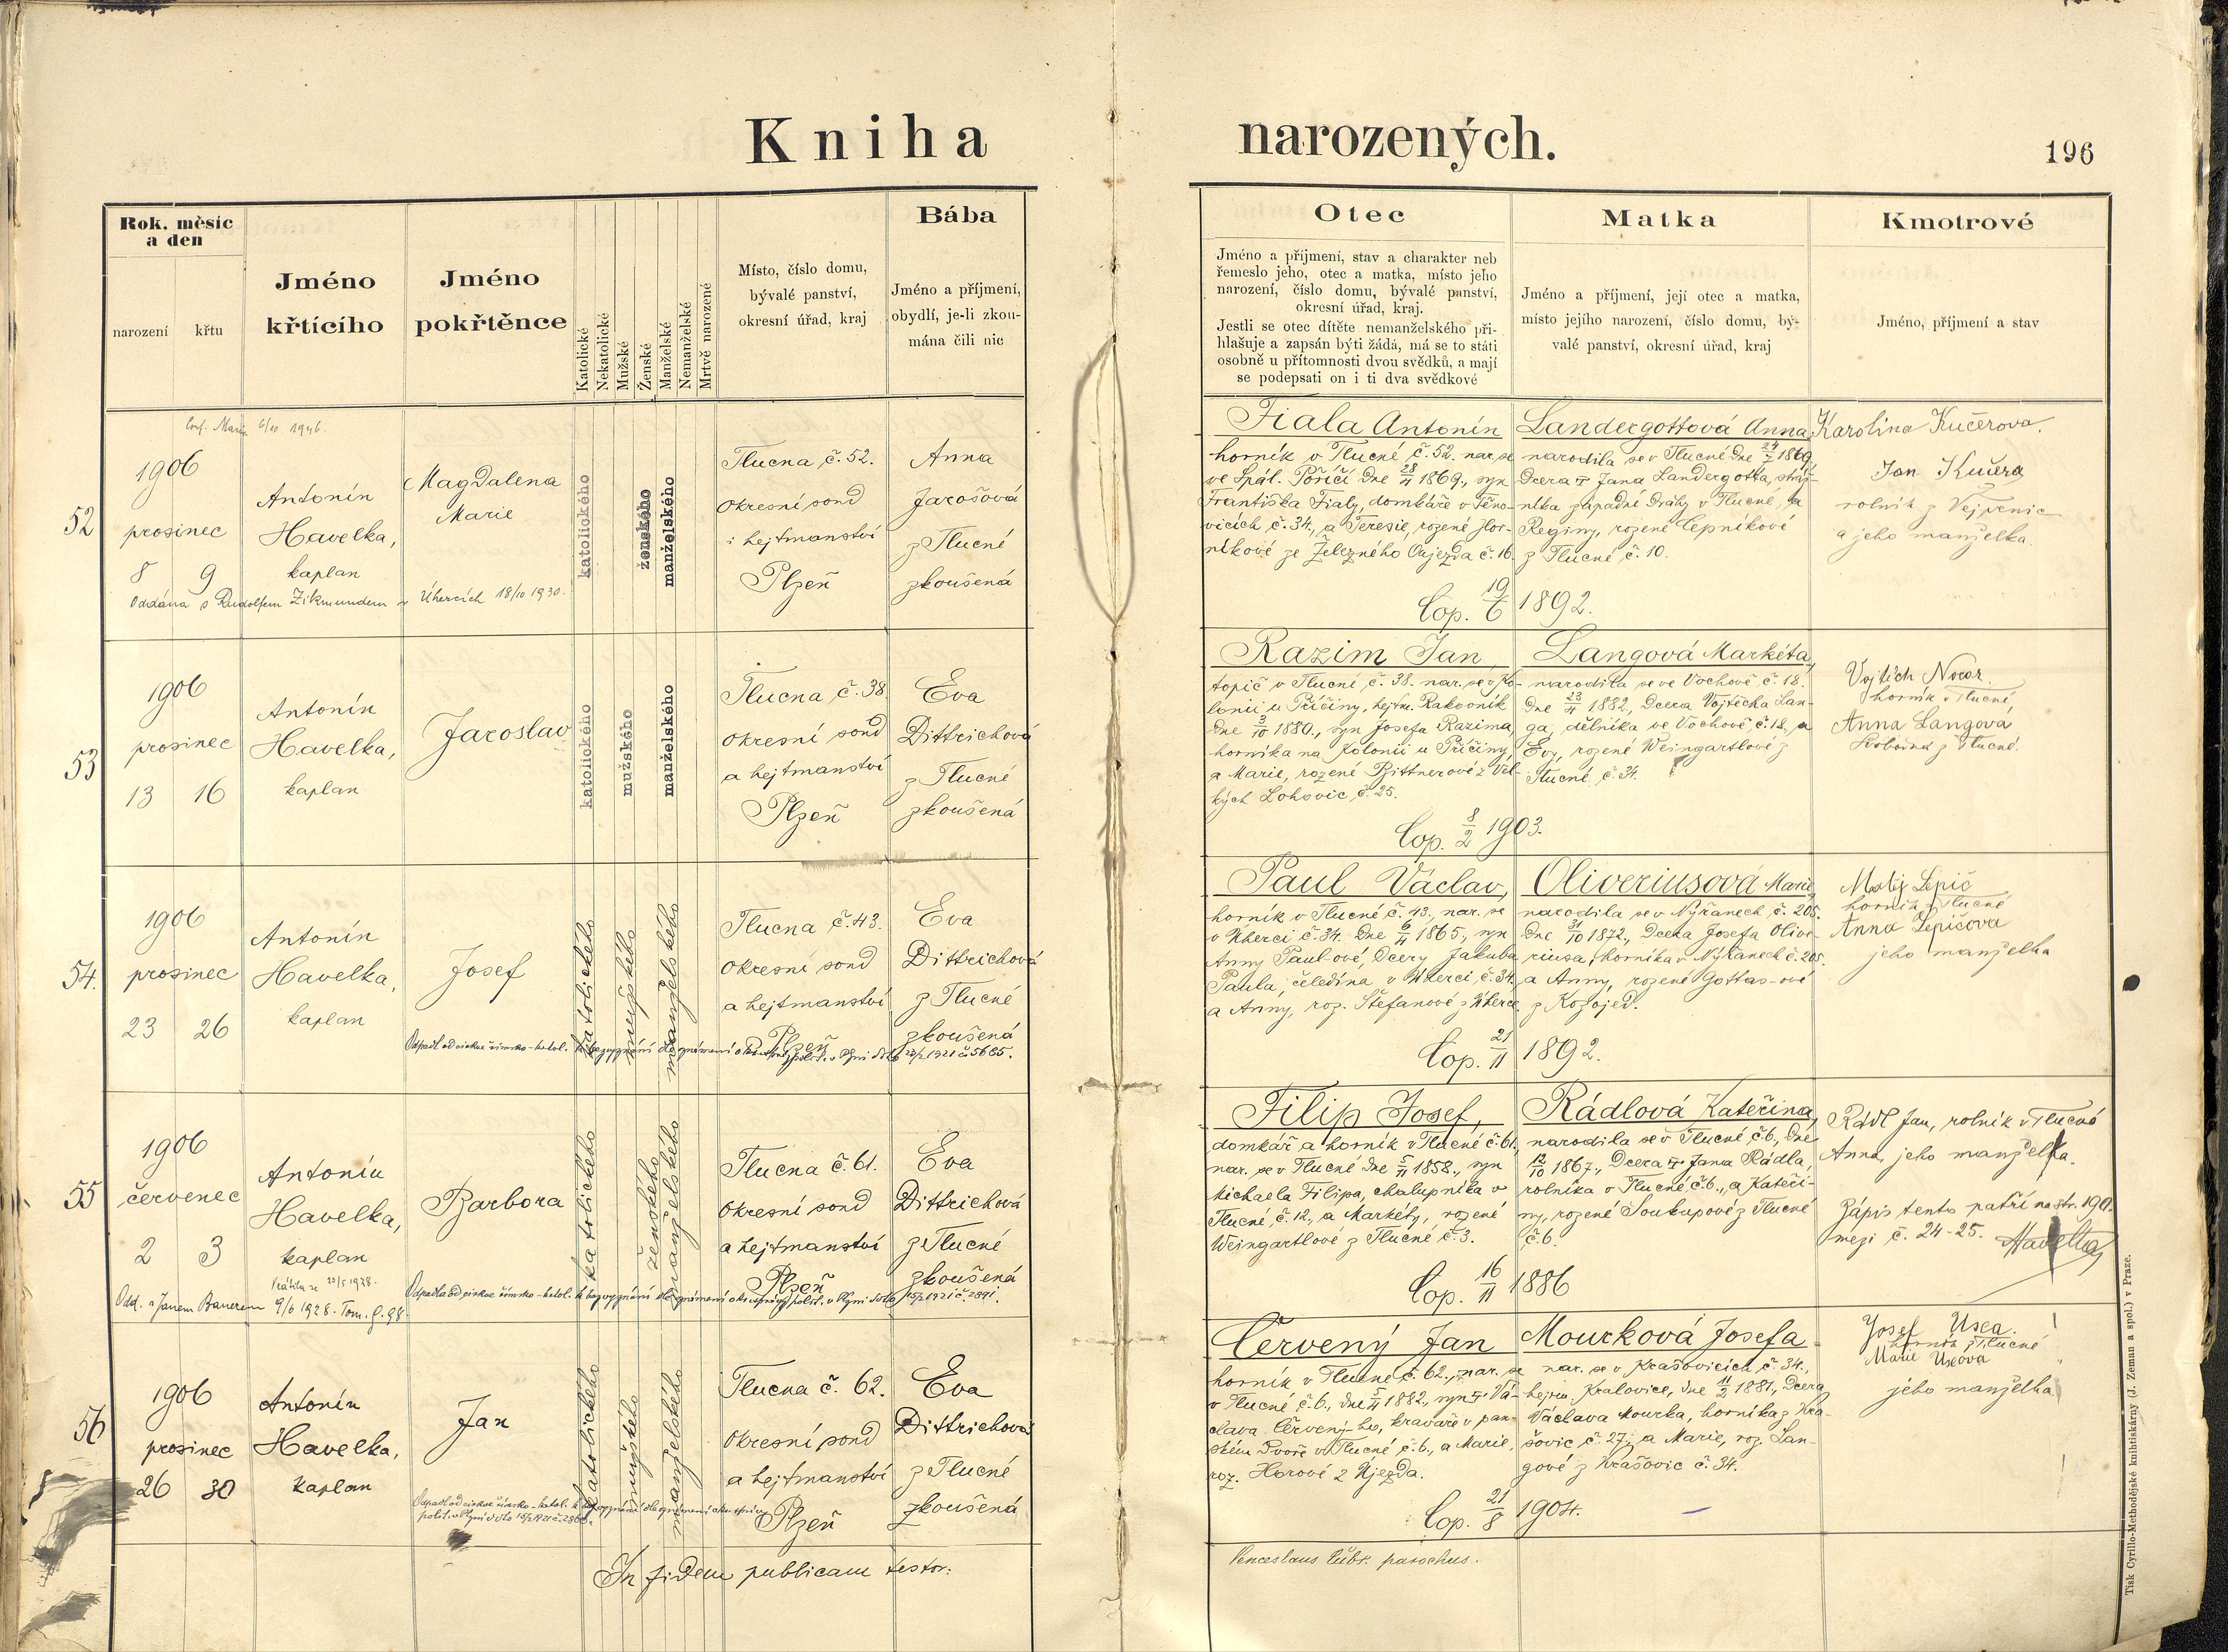 Kniha narozených.
196
Rok, měsíc
a den
narození
křtu
Jméno
křtícího
Jméno
pokřtěnce
Katolické
Nekatolické
Mužské
Ženské
Manželské
Nemanželské
Mrtvě narozené
Místo, číslo domu,
bývalé panství,
okresní úřad, kraj
Bába
Jméno a příjmení,
obydlí, je-li zkou-
mána čili nic
Otec
Jméno a příjmení, stav a charakter neb
řemeslo jeho, otec a matka, místo jeho
narození, číslo domu, bývalé panství,
okresní úřad, kraj.
Jestli se otec dítěte nemanželského při-
hlašuje a zapsán býti žádá, má se to státi
osobně u přítomnosti dvou svědků, a mají
se podepsati on i ti dva svědkové
Matka
Jméno a příjmení, její otec a matka,
místo jejího narození, číslo domu, bý-
valé panství, okresní úřad, kraj
Kmotrové
Jméno, příjmení a stav
52
1906
prosinec
8 9
Antonín
Havelka,
kaplan
Magdalena
Marie
Oddána s Rudolfem Zikmundem v Úhercích 18/10 1930.
katolického
ženského
manželského
Tlucna č. 52.
okresní soud
i hejtmanství
Plzeň
Anna
Jarošová
z Tlucné
zkoušená
Fiala Antonín
horník v Tlucné č. 52. nar. se
ve Spál. Poříčí dne 28/11 1869., syn
Františka Fialy, domkáře v Těno-
vicích č. 34., a Teresie, rozené Hor-
níkové ze Železného Oujezda č. 16.
Landergottová Anna
narodila se v Tlucné dne 24/7 1869,
dcera † Jana Landergotta, stráž-
níka západní dráhy v Tlucné, a
Reginy, rozené Čepníkové
z Tlucné č. 10.
Cop. 19/6 1892.
Karolina Kučerova.
Jan Kučera
rolník z Vejprnic
a jeho manželka.
53
1906
prosinec
13 16
Antonín
Havelka,
kaplan
Jaroslav
katolického
mužského
manželského
Tlucna č. 38
okresní soud
a hejtmanství
Plzeň
Eva
Dittrichová
z Tlucné
zkoušená
Razim Jan,
topič v Tlucné č. 38. nar. se v Ko-
lonii u Příčiny, hejtm. Rakovník
dne 3/10 1880., syn Josefa Razima,
horníka na Kolonii u Příčiny
a Marie, rozené Bittnerové z Vel-
kých Lohovic č. 25.
Langová Markéta,
narodila se ve Vochově č. 18.
dne 23/11 1882., dcera Vojtěcha Lan-
ga, dělníka ve Vochově č. 18., a
Evy, rozené Weingartlové z
Tlucné č. 34.
Cop. 8/2 1903.
horník v Tlucné,
Anna Langova
Svobodná z Tlucné.
54.
1906
prosinec
23 26
Antonín
Havelka,
kaplan
Josef
katolického
mužského
manželského
Tlucna č. 43.
okresní soud
a hejtmanství
Plzeň
Eva
Dittrichová
z Tlucné
zkoušená
Paul Václav,
horník v Tlucné č. 43., nar. se
v Úherci č. 34. dne 6/11 1865., syn
Anny Paul-ové, dcery Jakuba
Paula, čeledína v Úherci č. 34.
a Anny, roz. Štefanové z Úherce.
Oliveriusová Marie,
narodila se v Nýřanech č. 205.
dne 31/10 1872., dcera Josefa Olive-
riusa, horníka v Nýřanech č. 205.
a Anny, rozené Gottas-ové
z Kozojed.
Cop. 21/11 1892.
Matěj Lepič
horník z Tlucné
Anna Lepičova
jeho manželka
55
1906
červenec
2 3
Antonín
Havelka,
kaplan
Barbora
Odd. s Janem Bauerem 9/6 1928.
katolického
ženského
manželského
Tlucna č. 61.
okresní soud
a hejtmanství
Plzeň
Eva
Dittrichová
z Tlucné
zkoušená
Filip Josef,
domkář a horník v Tlucné č. 61.,
nar. se v Tlucné dne 5/11 1858., syn
Michaela Filipa, chalupníka v
Tlucné č. 12., a Markéty, rozené
Weingartlové z Tlucné č. 3.
Rádlová Kateřina,
narodila se v Tlucné č. 6., dne
12/10 1867., dcera † Jana Rádla,
rolníka v Tlucné č. 6., a Kateři-
ny, rozené Soukupové z Tlucné
č. 6.
Cop. 16/11 1886
Rádl Jan, rolník v Tlucné
Anna, jeho manželka.
Zápis tento patří na str. 190.
mezi č. 24-25. Havelka
56
1906
prosinec
26 30
Antonín
Havelka,
kaplan
Jan
katolického
mužského
manželského
Tlucna č. 62.
okresní soud
a hejtmanství
Plzeň
Eva
Dittrichová
z Tlucné
zkoušená
Červený Jan
horník v Tlucné č. 62., nar. se
v Tlucné č. 6., dne 5/11 1882., syn † Vá-
clava Červený-ho, kraváře v pan-
ském dvoře v Tlucné č. 6., a Marie,
roz. Horové z Újezda.
Mourková Josefa
nar. se v Krašovicích č. 34.,
hejtm. Kralovice, dne 11/2 1881., dcera
Václava Mourka, horníka z Kra-
šovic č. 27., a Marie, roz. Lan-
gové z Krašovic č. 34.
Cop. 21/8 1904.
Josef
horník z Tlucné
Marie
jeho manželka
In fidem publicam testor:
Venceslaus parochus.
Tisk Cyrillo-Methodějské knihtiskárny (J. Zeman a spol.) v Praze.